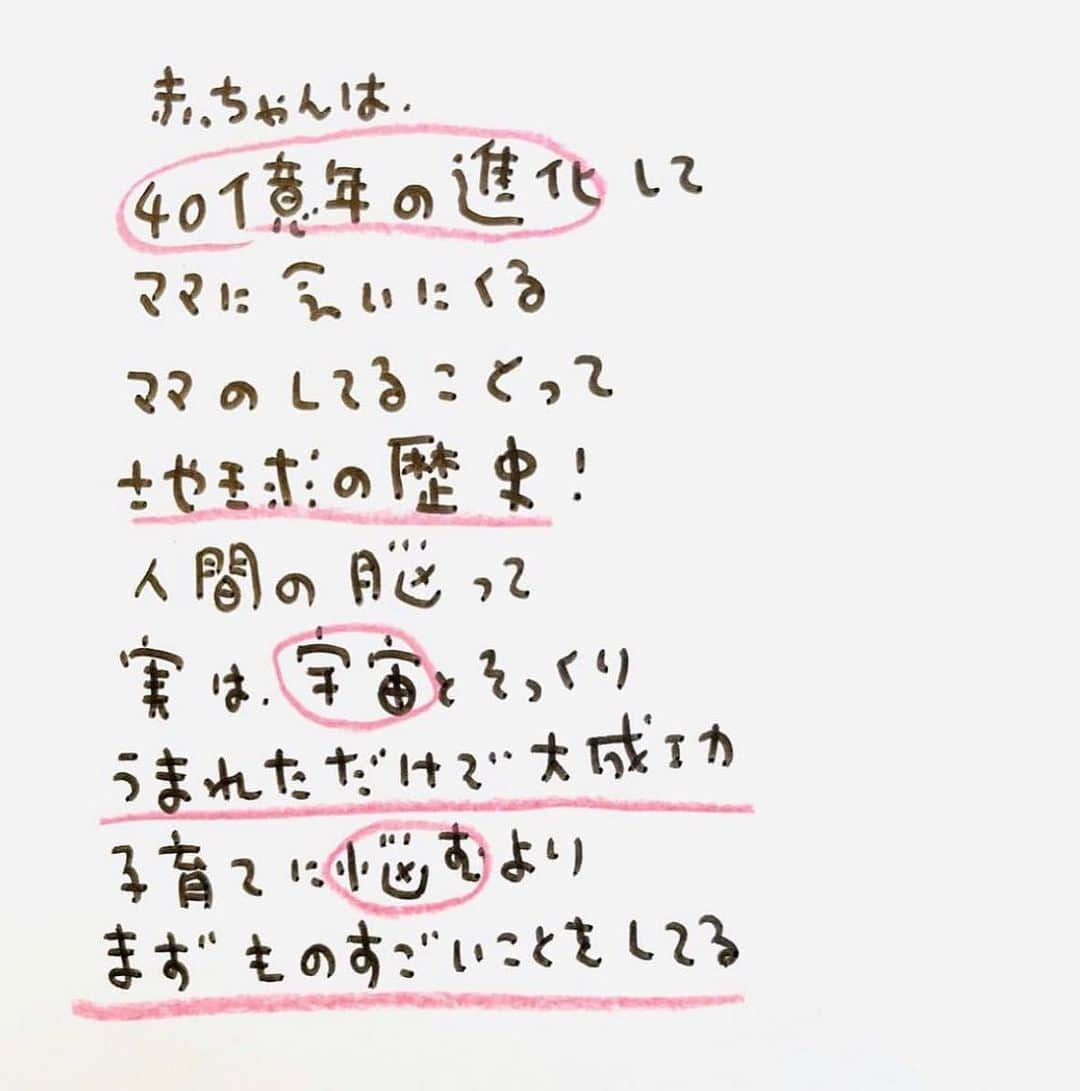 赤ちゃんは.
40億年の進化して
ママに会いにくる
ママのしてることって
地球の歴史!
人間の脳って
実は.宇宙とそっくり
うまれただけで大成功
子育てに悩むより
まずものすごいことをしてる